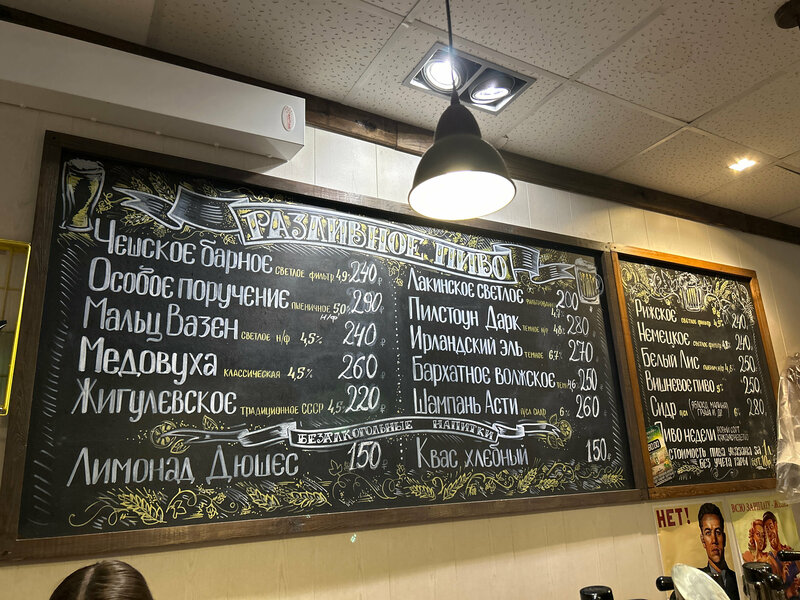 РАЗЛИВНОЕ ПИВО
Чешское барное светлое фильтр. 4,9% 240 ₽
Особое поручение пшеничное 5,0% н/ф 290 ₽
Мальц Вазен светлое н/ф 4,5% 240 ₽
Медовуха классическая 4,5% 260 ₽
Жигулевское традиционное СССР 4,5% 220 ₽
Лакинское светлое 200 ₽
Пилстоун Дарк темное н/ф 4,8% 280 ₽
Ирландский эль темное 6,7% 270 ₽
Бархатное волжское 4,6 250 ₽
Шампань Асти п/сл сидр 6% 260 ₽
БЕЗАЛКОГОЛЬНЫЕ НАПИТКИ
Лимонад Дюшес 150 ₽
Квас хлебный 150 ₽
Рижское светлое фильтр 240
Немецкое 240
Белый Лис 250
Вишневое пиво 250
Сидр п/сл 280
Пиво недели новый сорт каждую неделю
Стоимость пива указана за 1 л
без учета тары
НЕТ!
ВСЮ ЗАРПЛАТУ - ЖЕНЕ